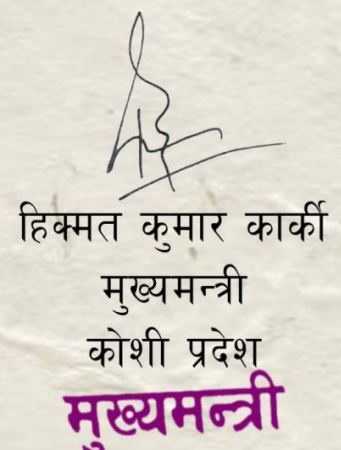 हिक्मत कुमार कार्की
मुख्यमन्त्री
कोशी प्रदेश
मुख्यमन्त्री